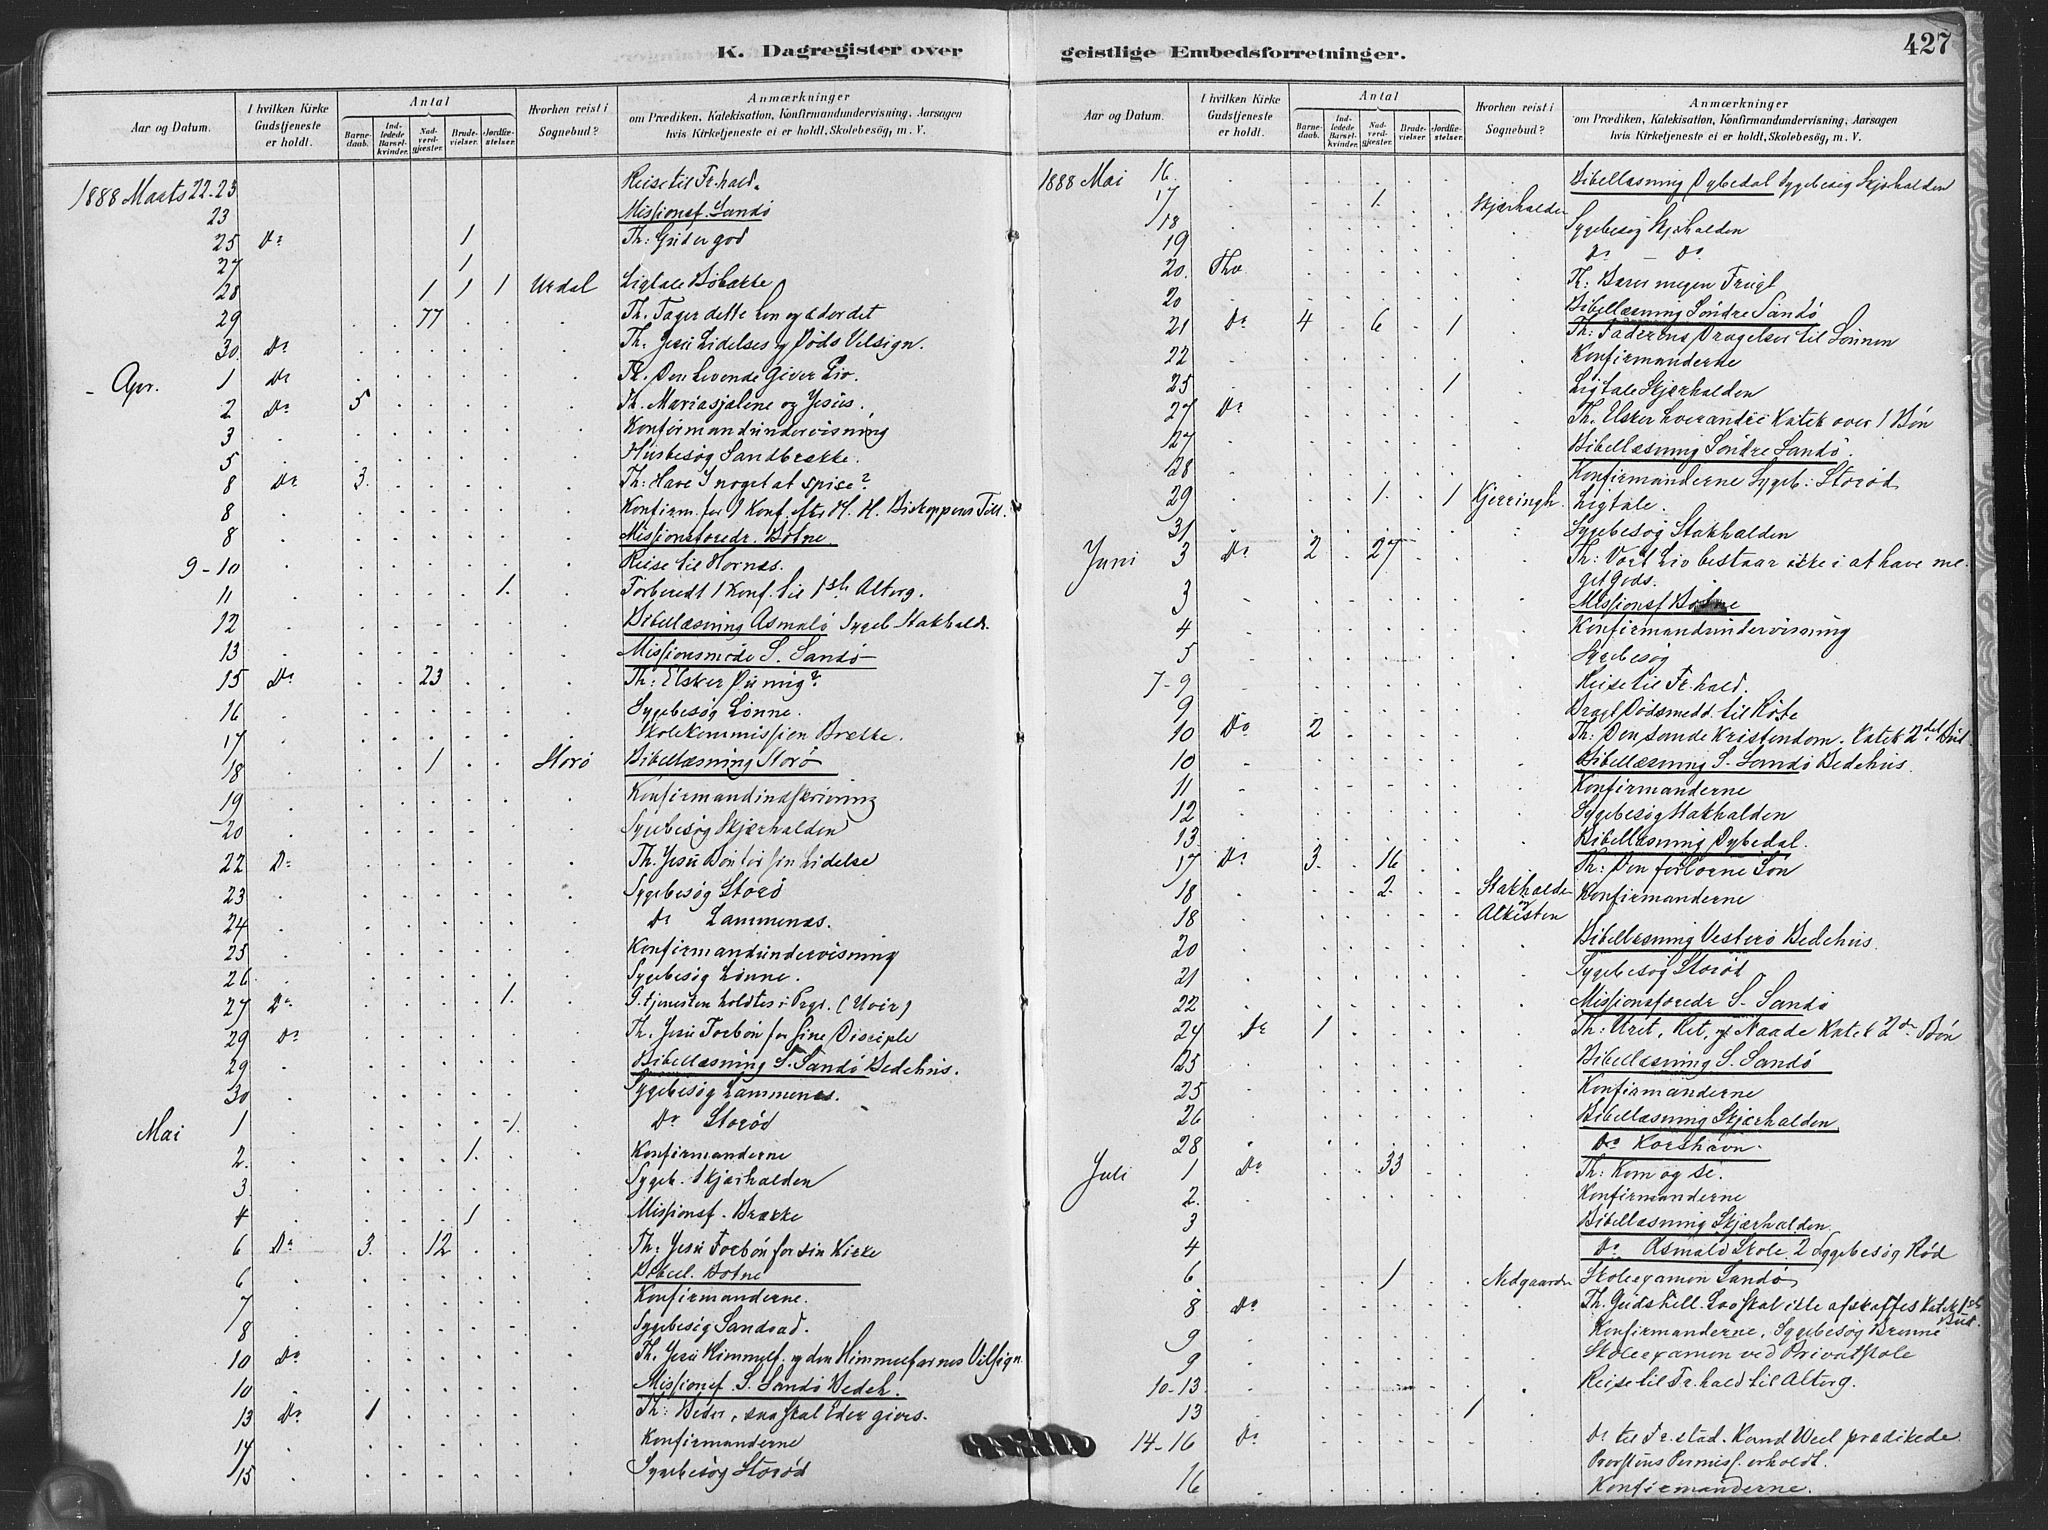 K. Dagregister over
Aar og Datum.
I hvilken Kirke Gudstjeneste er holdt.
Antal
Barnedaab.
Indledede Barselkvinder.
Nadverdgjester.
Brudevielser.
Jordfæstelser.
Hvorhen reist i Sognebud?
Anmærkninger
om Prædiken, Katekisation, Konfirmandundervisning, Aarsagen
hvis Kirketjeneste ei er holdt, Skolebesøg, m. V.
1888 Marts 22-23 Reise til Fr.hald.
23 Missionsf. Sandö
25 Do 1 Th: Gud er god
27 1
28 1 1 1 Urdal Ligtale Böbakke
29 77 Th. Tager dette hen og æder det
30. Do Th. Jesu Lidelses og Döds Velsign.
- Apr. 1 Do Th. Den Levende giver Liv.
2 Do 5 Th. Mariasjælene og Jesus.
3 Konfirmandundervisning
5 Husbesøg Sandbrække.
8 Do 3. Th: Have I noget at spise?
8 Konfirm. for 1 Konf. efter H. H. Biskoppens Till.
8 Missionsforedr. Botne.
9-10 Reise til Hornæs.
11 1. Forberedt 1 Konf. til 1ste Alterg.
12 Bibellæsning Asmalö Sygeb. Stakhald.
13 Missionsmöde S. Sandö
15 Do 23 Th: Elsker Du mig?
16 Sygebesög Lönne.
17 Skolekommission Brække.
18 1 Storö Bibellæsning Storö
19 Konfirmandindskrivning
20 Sygebesög Skjærhalden
22 Do Th. Jesu Bön för sin Lidelse
23 Sygebesög Storö
24 Do Lammenæs.
25 Konfirmandundervisning
26 Sygebesög Lönne.
27 Do 1. G.tjenesten holdtes i Prgr. (Uveir)
29 Do Th. Jesu Forbön for sine Disciple
29 Bibellæsning S. Sandö Bedehus.
30 Sygebesög Lammenæs.
Mai 1 1. Do Storöd
2. 1. Konfirmanderne
3. Sygeb. Skjærhalden
4 1 Missionsf. Brække
6 Do 3. 12 Th: Jesu Forbön for sin Kirke
6 Bibell. Botne
7 Konfirmanderne.
8 Sygebesög Sandvad.
10 Do Th. Jesu Himmelf. og den Himmelfarnes Velsign.
10 Missionsf. S. Sandö Bedeh.
13 Do 1 Th: Beder, saa skal Eder gives.
14 Konfirmanderne
15 Sygebesög Storöd
geistlige Embedsforretninger.
427
Aar og Datum.
I hvilken Kirke Gudstjeneste er holdt.
Antal
Barnedaab.
Indledede Barselkvinder.
Nadverdgjester.
Brudevielser.
Jordfæstelser.
Hvorhen reist i Sognebud?
Anmærkninger
om Prædiken, Katekisation, Konfirmandundervisning, Aarsagen
hvis Kirketjeneste ei er holdt, Skolebesøg, m. V.
1888 Mai 16. Bibellæsning Dybedal Sygebesög Skjærhalden
17 1. Skjærhalden
18 Sygebesög Skjærhalden
19 Do - Do
20. Hvo Th: Bærer megen Frugt
20 Bibellæsning Söndre Sandö
21 Do 4 6 1 Th: Faderens Dragelser til Sönnen
22 Konfirmanderne
25 1 Ligtale Skjærhalden
27 Do Th. Elsker hverandre Katek over 1 Bön
27 Bibellæsning Söndre Sandö.
28 Konfirmanderne Sygeb. Storöd
29 1. 1 Kjerringh. Ligtale.
31 Sygebesög Stakhalden
Juni 3 Do 2 27 Th: Vort Liv bestaar ikke i at have meget Gods.
3 Missionsf Botne
4 Konfirmandundervisning
5 Sygebesög
7-9 Reise til Fr.hald.
9 Bragt Dödsmedd. til Röse
10 Do 2 Th: Den sande Kristendom. Katek 2det Bud
10 Bibellæsning S. Sandö Bedehus.
11 Konfirmanderne
12 Sygebesög Stakhalden
13. Bibellæsning Dybedal.
17 Do 3. 16 Th: Den forlorne Sön
18 2. Stakhalden og Konfirmanderne
18 Alkisten
20 Bibellæsning Vesterö Bedehus.
21 Sygebesög Storöd
22 Missionsforedr S. Sandö
24 Do 1 Th: Uret, Ret, og Naade Katek 2den Bön
25 Bibellæsning S. Sandö
25 Konfirmanderne
26 Bibellæsning Skjærhalden
28 Do Korshavn.
Juli 1 Do 33 Th: Kom og se.
2. Konfirmanderne
3 Bibellæsning Skjærhalden
4 Do Asmalö Skole 2 Sygebesög Röd
6 1 Nedgaarden Skoleexamen Sandö
8 Do Th. Guds hell. Lov skal ikke afskaffes Katek 1ste Bud.
9 Konfirmanderne. Sygebesög Brenne
9 Skoleexamen ved Privatskole
10-13 Reise til Fr.hald til Alterg.
13 1
14-16 Do Do til Fr.stad. Kand Weel prædikede
Provstens Permiss. erholdt.
16 Konfirmanderne.